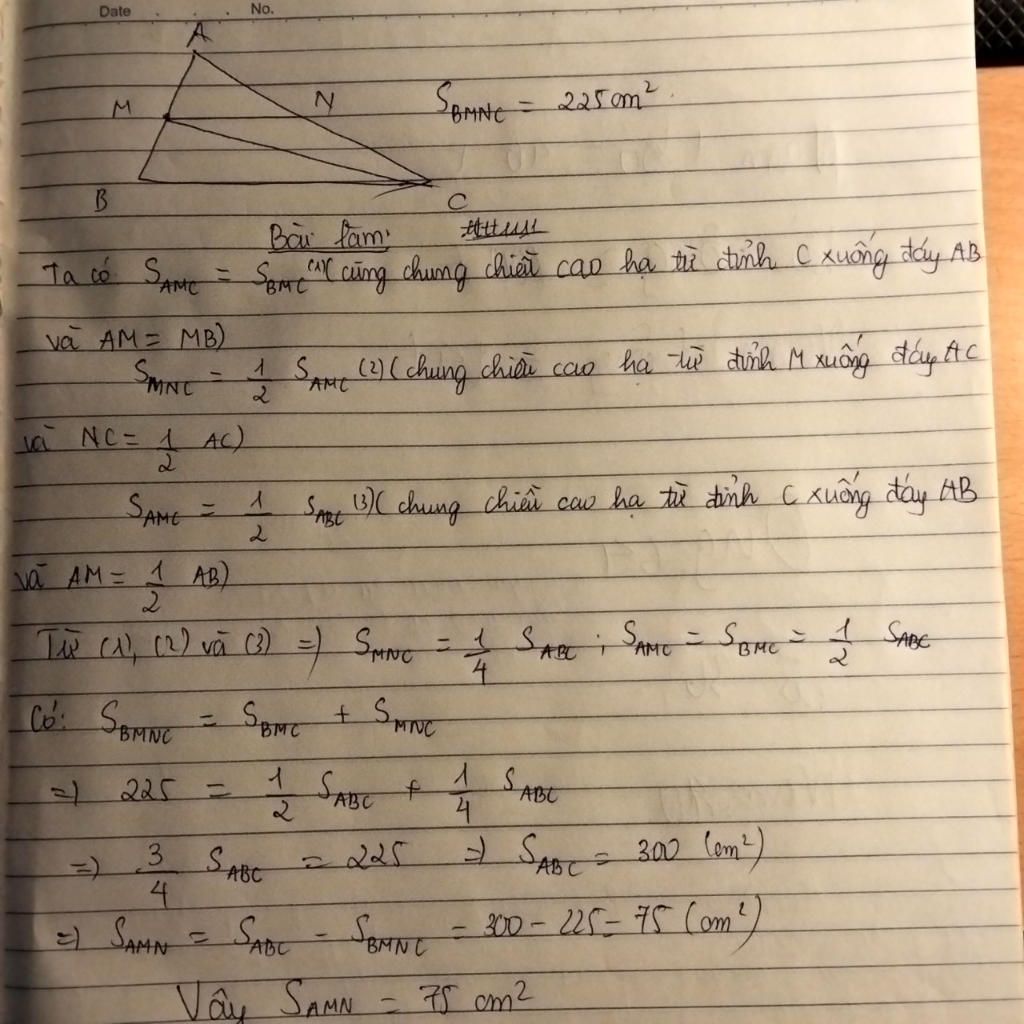 Date . . . No.
A
M N S_BMNC = 225 cm².
B C
Bài làm:
Ta có S_AMC = S_BMC (1) (cùng chung chiều cao hạ từ đỉnh C xuống đáy AB
và AM = MB)
S_MNC = 1/2 S_AMC (2) (chung chiều cao hạ từ đỉnh M xuống đáy AC
và NC = 1/2 AC)
S_AMC = 1/2 S_ABC (3) (chung chiều cao hạ từ đỉnh C xuống đáy AB
và AM = 1/2 AB)
Từ (1), (2) và (3) => S_MNC = 1/4 S_ABC ; S_AMC = S_BMC = 1/2 S_ABC
Có: S_BMNC = S_BMC + S_MNC
=> 225 = 1/2 S_ABC + 1/4 S_ABC
=> 3/4 S_ABC = 225 => S_ABC = 300 (cm²)
=> S_AMN = S_ABC - S_BMNC = 300 - 225 = 75 (cm²)
Vậy S_AMN = 75 cm²